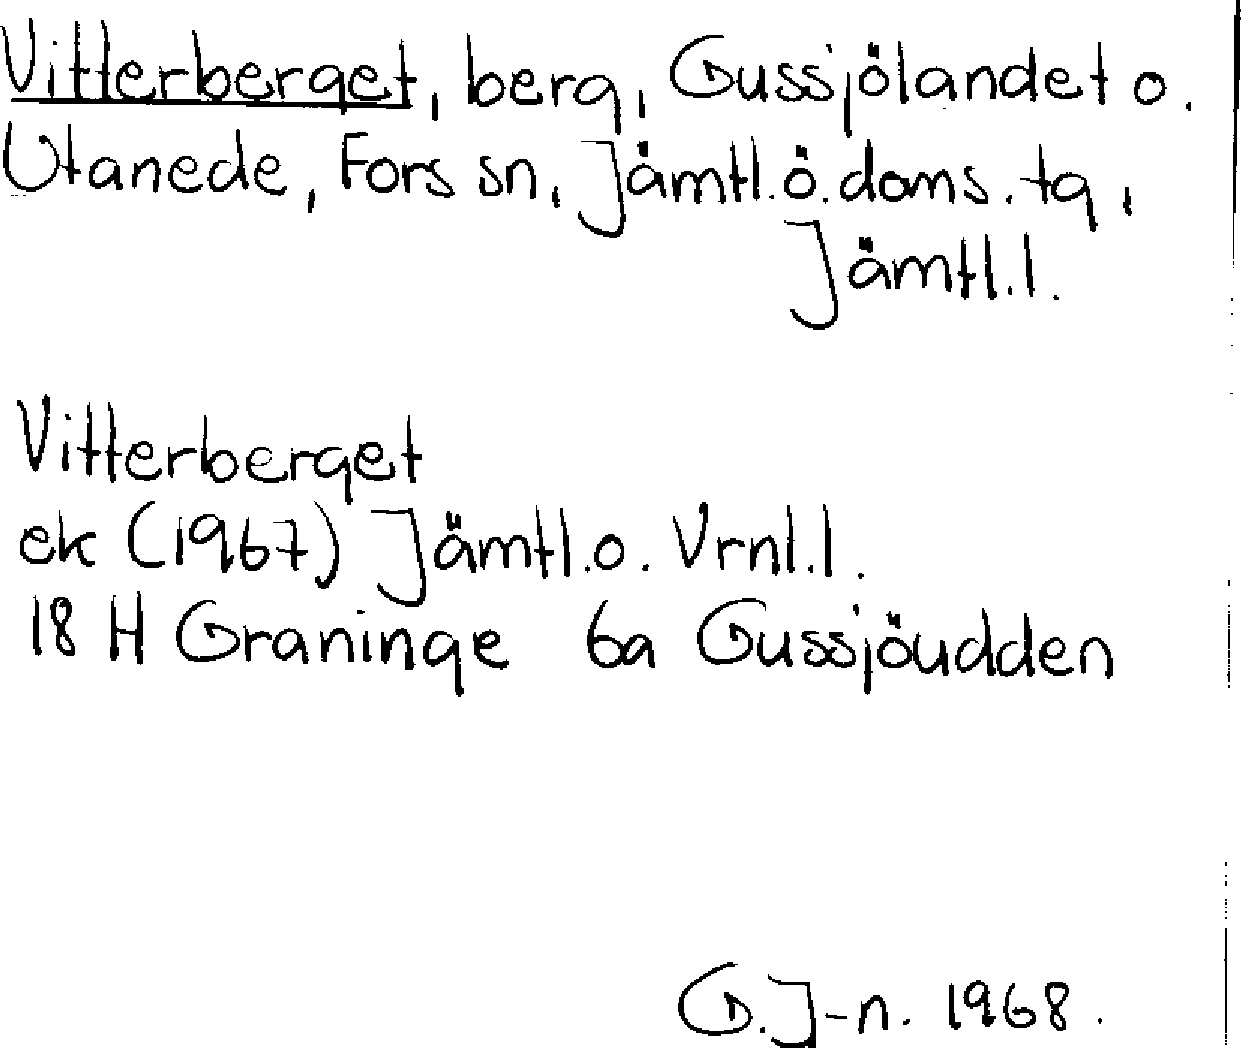 Vitterberget, berg, Gussjölandet o.
Utanede, Fors sn, Jämtl.ö.doms.tg,
Jämtl.l.
Vitterberget
ek (1967) Jämtl.o. Vrnl.l.
18 H Graninge 6a Gussjöudden
G.J-n. 1968.